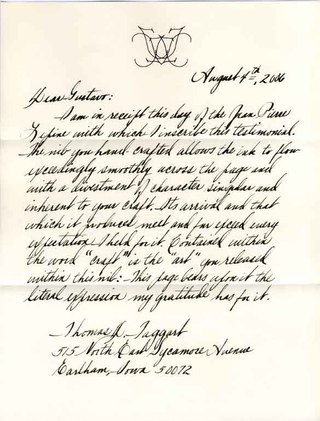 August 4th, 2006
Dear Gustavo:
I am in receipt this day of the Jean Pierre
Lepine with which I inscribe this testimonial.
The nib you hand crafted allows the ink to flow
exceedingly smoothly across the page and
with a divestment of character singular and
inherent to your craft. Its arrival and that
which it produces meet and far exceed every
expectation I held for it. Contained within
the word "craft" is the "art" you released
within this nib:- This page bears upon it the
literal expression my gratitude has for it.
Thomas A. Taggart
515 North East Sycamore Avenue
Earlham, Iowa 50072